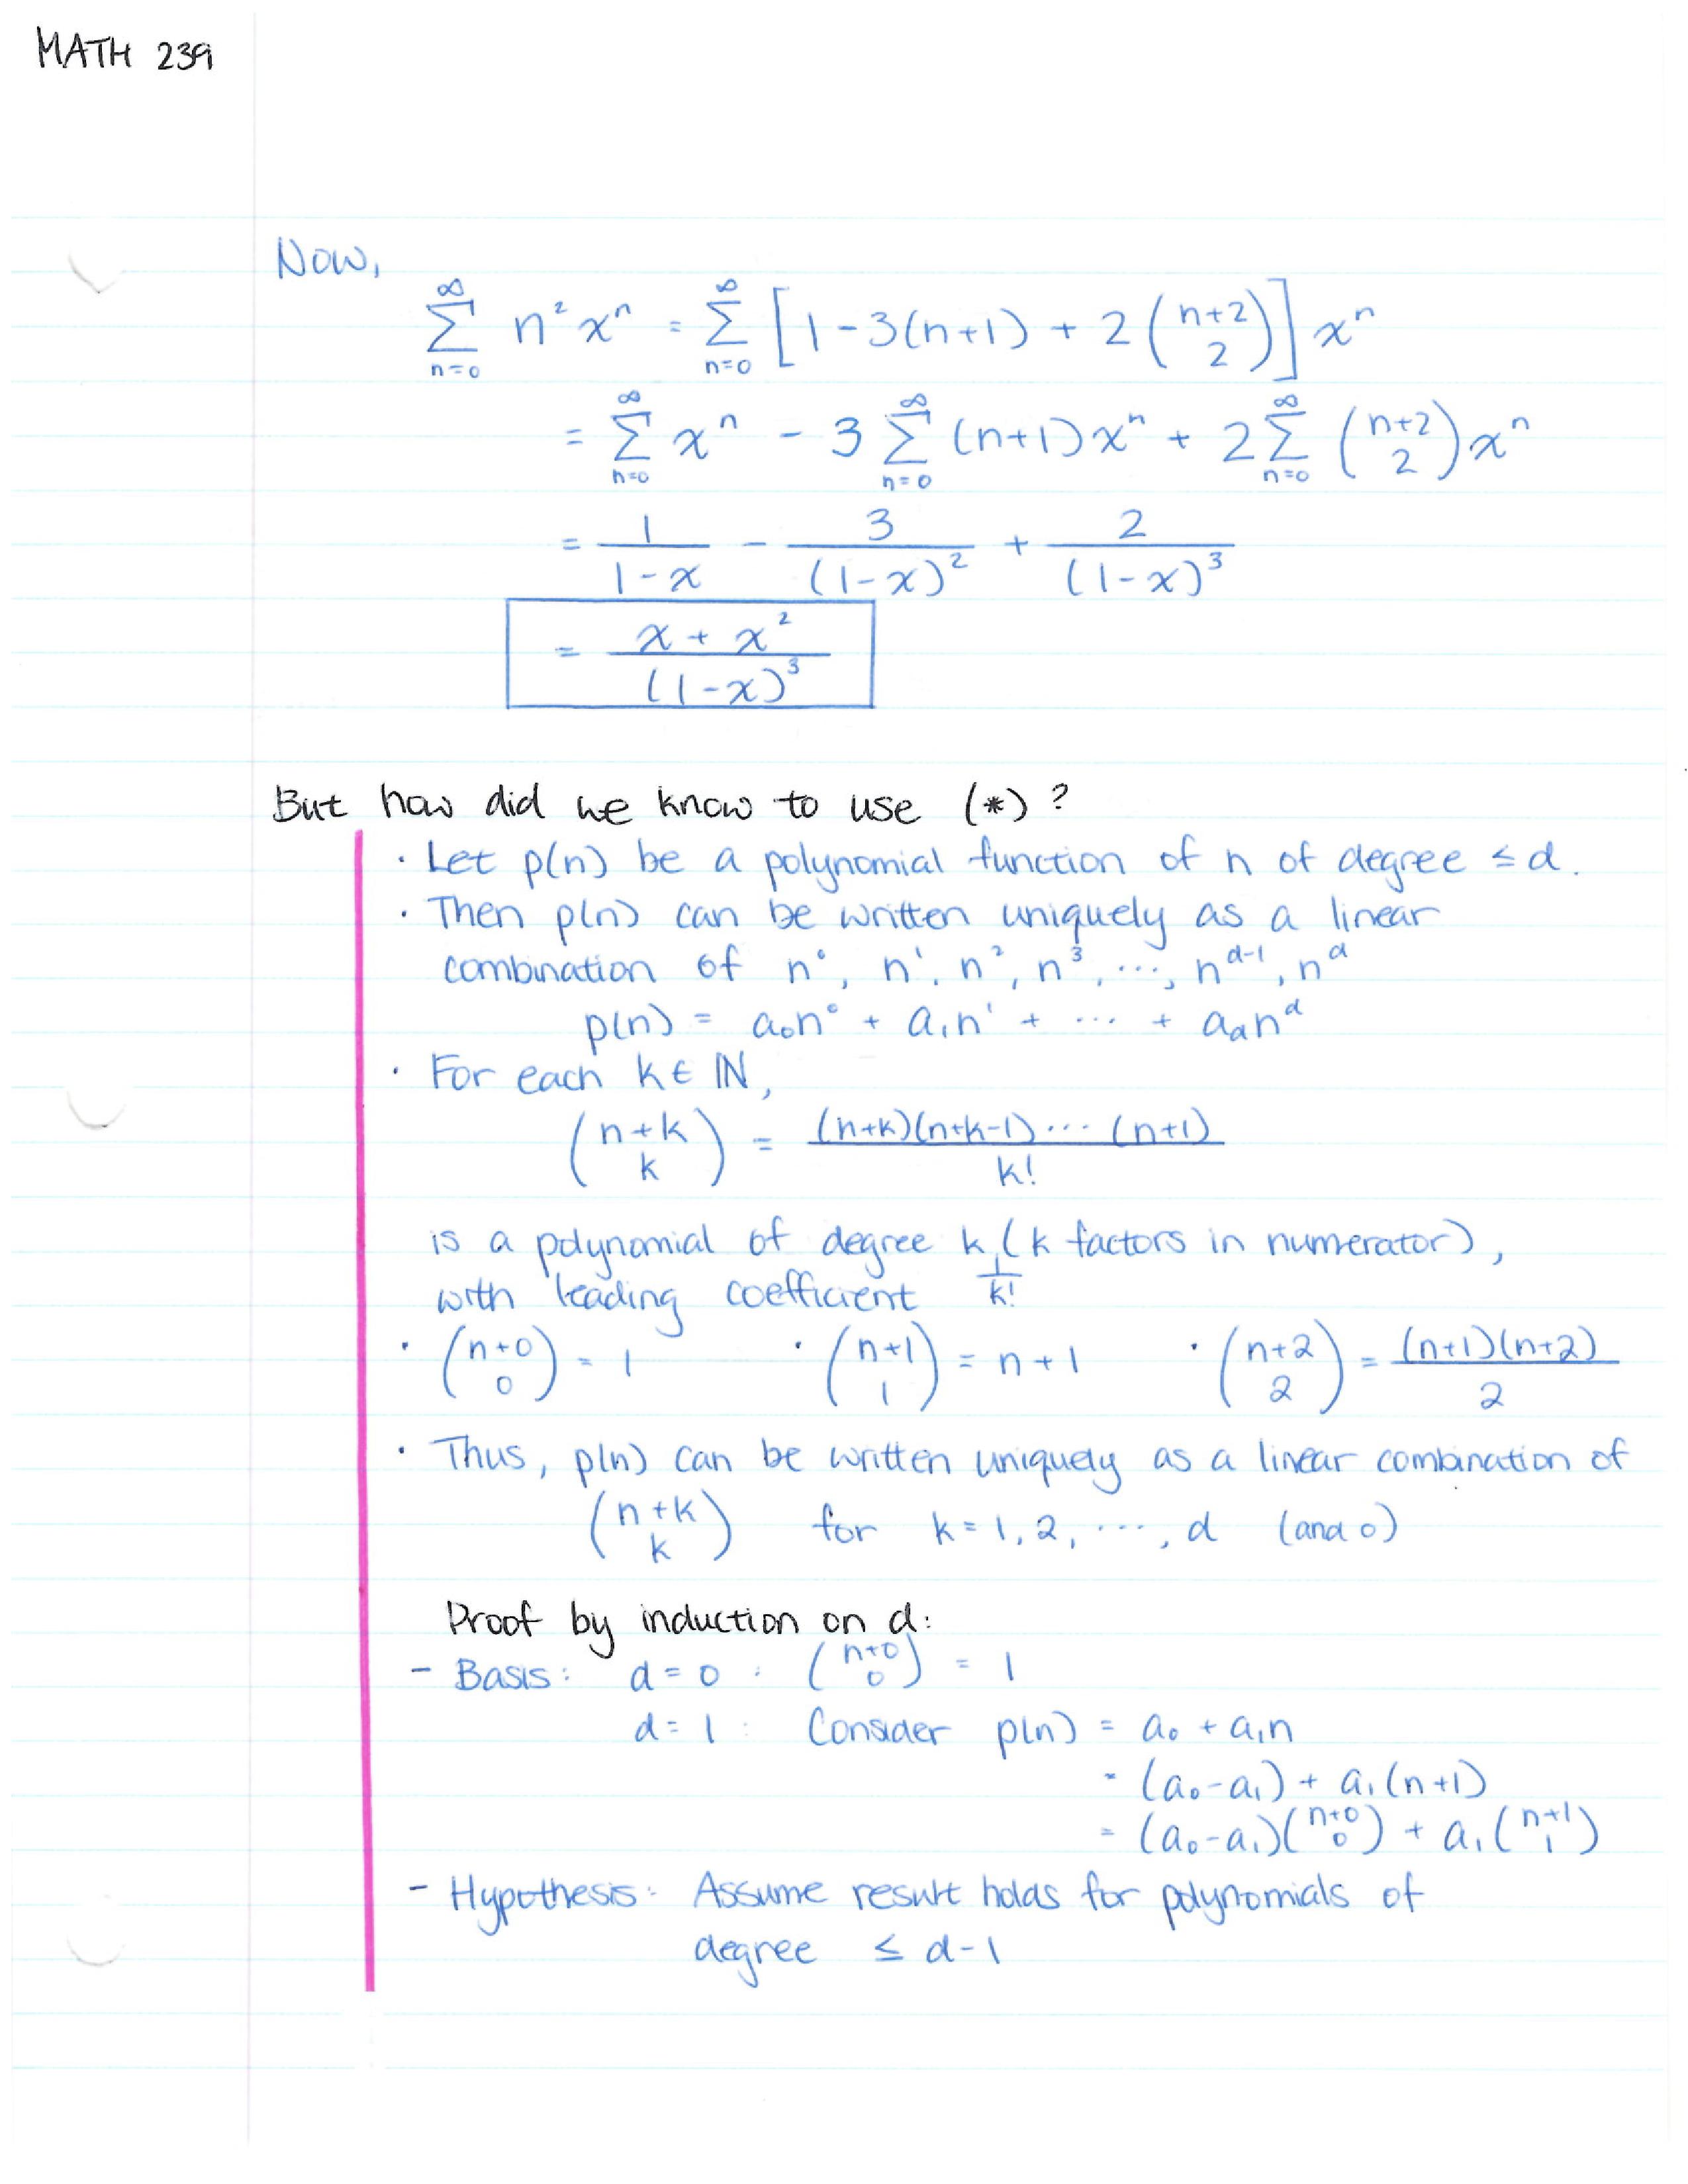 MATH 239
Now,
∞ ∑ n=0 n² xⁿ = ∞ ∑ n=0 [1 - 3(n+1) + 2 (n+2 2)] xⁿ
= ∞ ∑ n=0 xⁿ - 3 ∞ ∑ n=0 (n+1) xⁿ + 2 ∞ ∑ n=0 (n+2 2) xⁿ
= 1/(1-x) - 3/(1-x)² + 2/(1-x)³
= (x + x²)/(1-x)³
But how did we know to use (*)?
· Let p(n) be a polynomial function of n of degree ≤ d.
· Then p(n) can be written uniquely as a linear
combination of n⁰, n¹, n², n³, ..., n^(d-1), n^d
p(n) = a₀n⁰ + a₁n¹ + ... + a_d n^d
· For each k ∈ ℕ,
(n+k k) = (n+k)(n+k-1)...(n+1) / k!
is a polynomial of degree k (k factors in numerator),
with leading coefficient 1/k!
· (n+0 0) = 1 · (n+1 1) = n+1 · (n+2 2) = (n+1)(n+2) / 2
· Thus, p(n) can be written uniquely as a linear combination of
(n+k k) for k = 1, 2, ..., d (and 0)
Proof by induction on d:
- Basis: d = 0 : (n+0 0) = 1
d = 1 : Consider p(n) = a₀ + a₁n
= (a₀-a₁) + a₁(n+1)
= (a₀-a₁)(n+0 0) + a₁(n+1 1)
- Hypothesis: Assume result holds for polynomials of
degree ≤ d-1